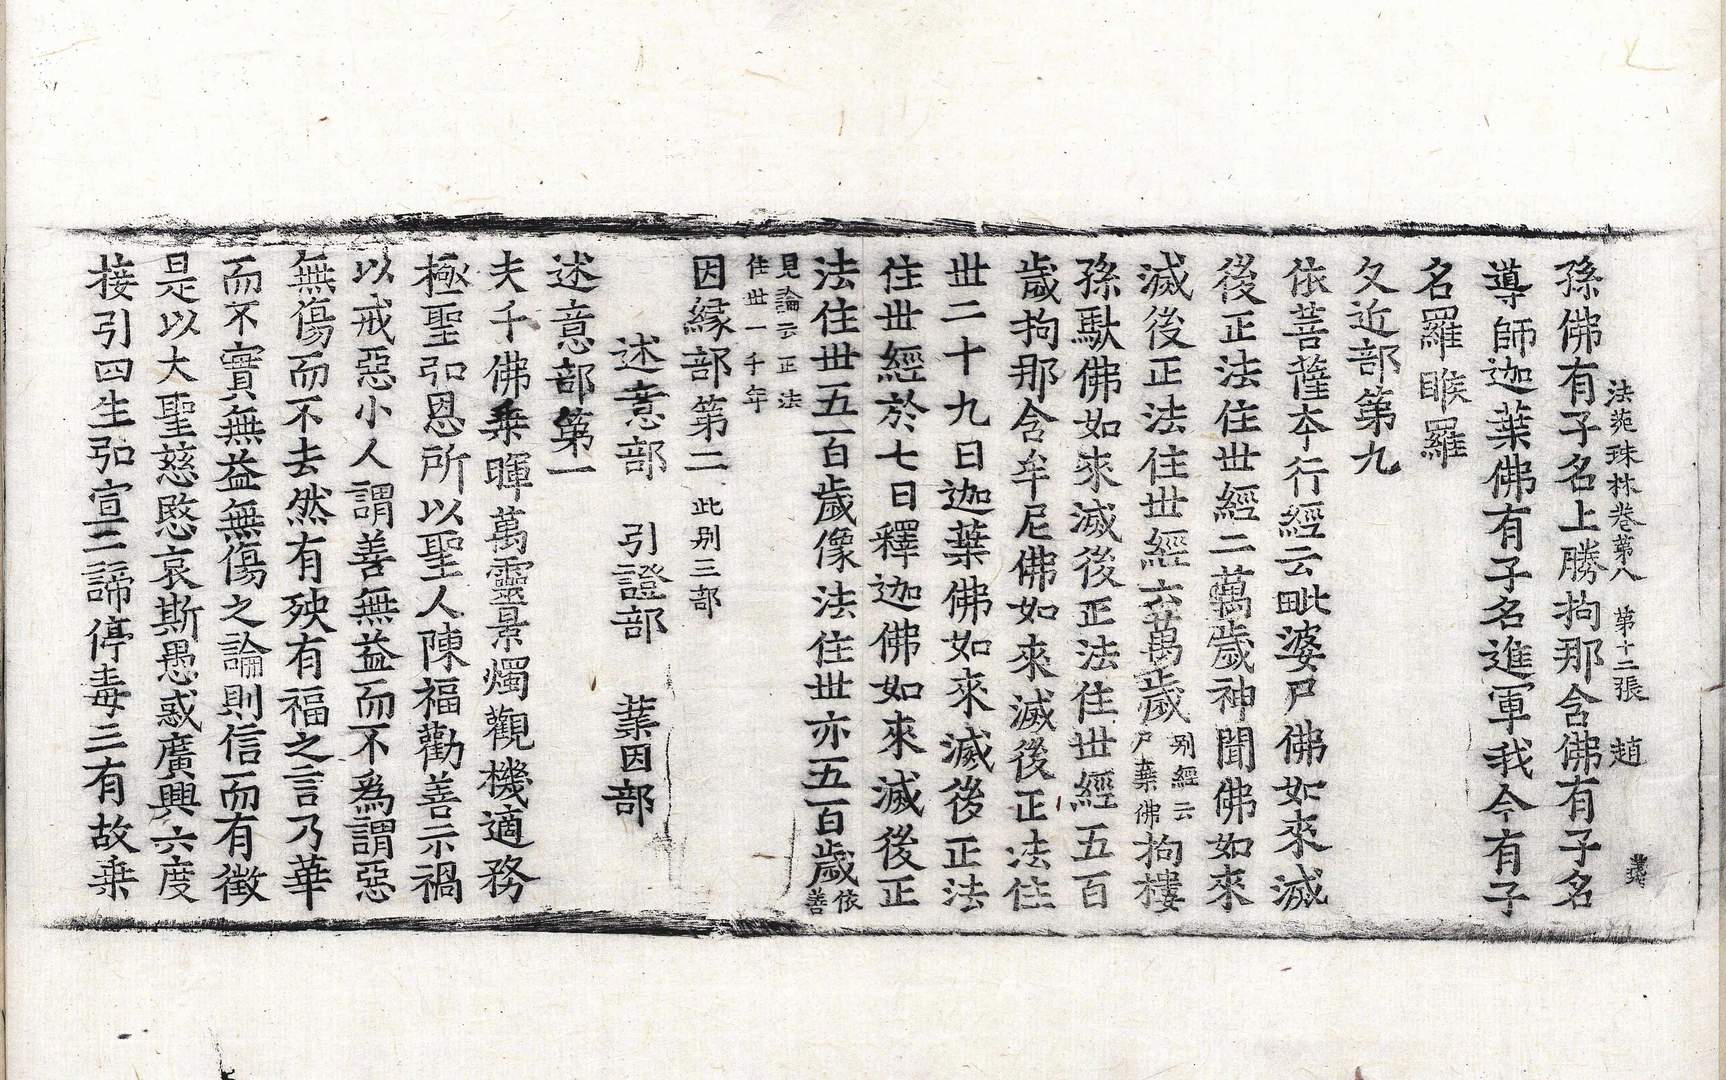 法苑珠林卷第八　第十二張　趙
孫佛有子名上勝拘那含佛有子名
導師迦葉佛有子名進軍我今有子
名羅睺羅
久近部第九
依菩薩本行經云毗婆尸佛如來滅
後正法住世經二萬歲神聞佛如來
滅後正法住世經六萬歲别經云尸棄佛拘樓
孫馱佛如來滅後正法住世經五百
歲拘那含牟尼佛如來滅後正法住
世二十九日迦葉佛如來滅後正法
住世經於七日釋迦佛如來滅後正
法住世五百歲像法住世亦五百歲依善
見論云正法住世一千年
因緣部第二此别三部
述意部　引證部　業因部
述意部第一
夫千佛乗暉萬靈景燭觀機適務
極聖弘恩所以聖人陳福勸善示禍
以戒惡小人謂善無益而不爲謂惡
無傷而不去然有殃有福之言乃華
而不實無益無傷之論則信而有徵
是以大聖慈愍哀斯愚惑廣興六度
接引四生弘宣二諦停毒三有故乗